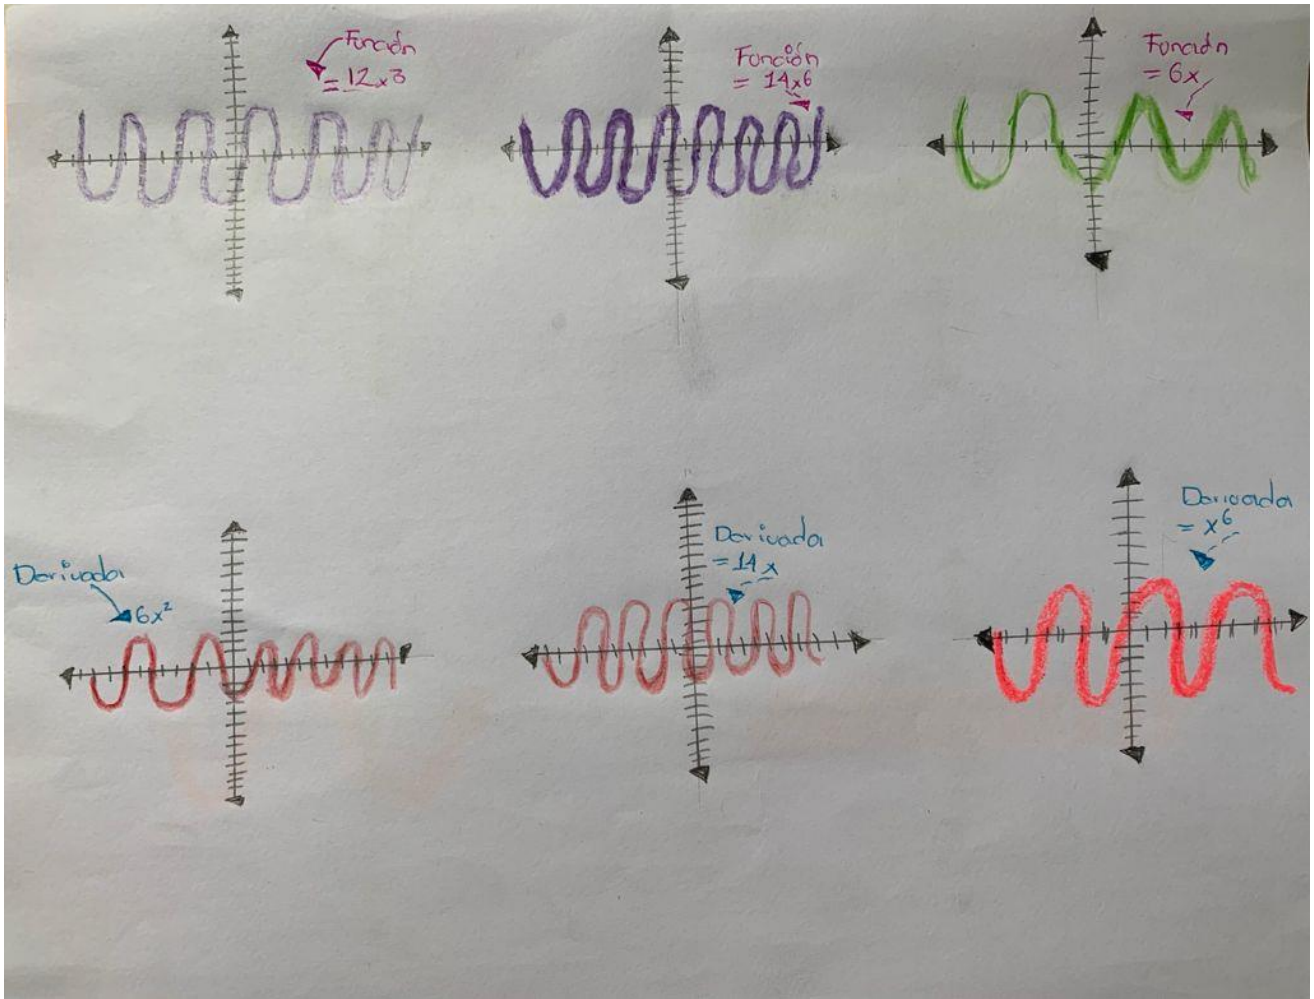 Función
= 12x3
Función
= 14x6
Función
= 6x
Derivada
6x²
Derivada
= 14x
Derivada
= x⁶